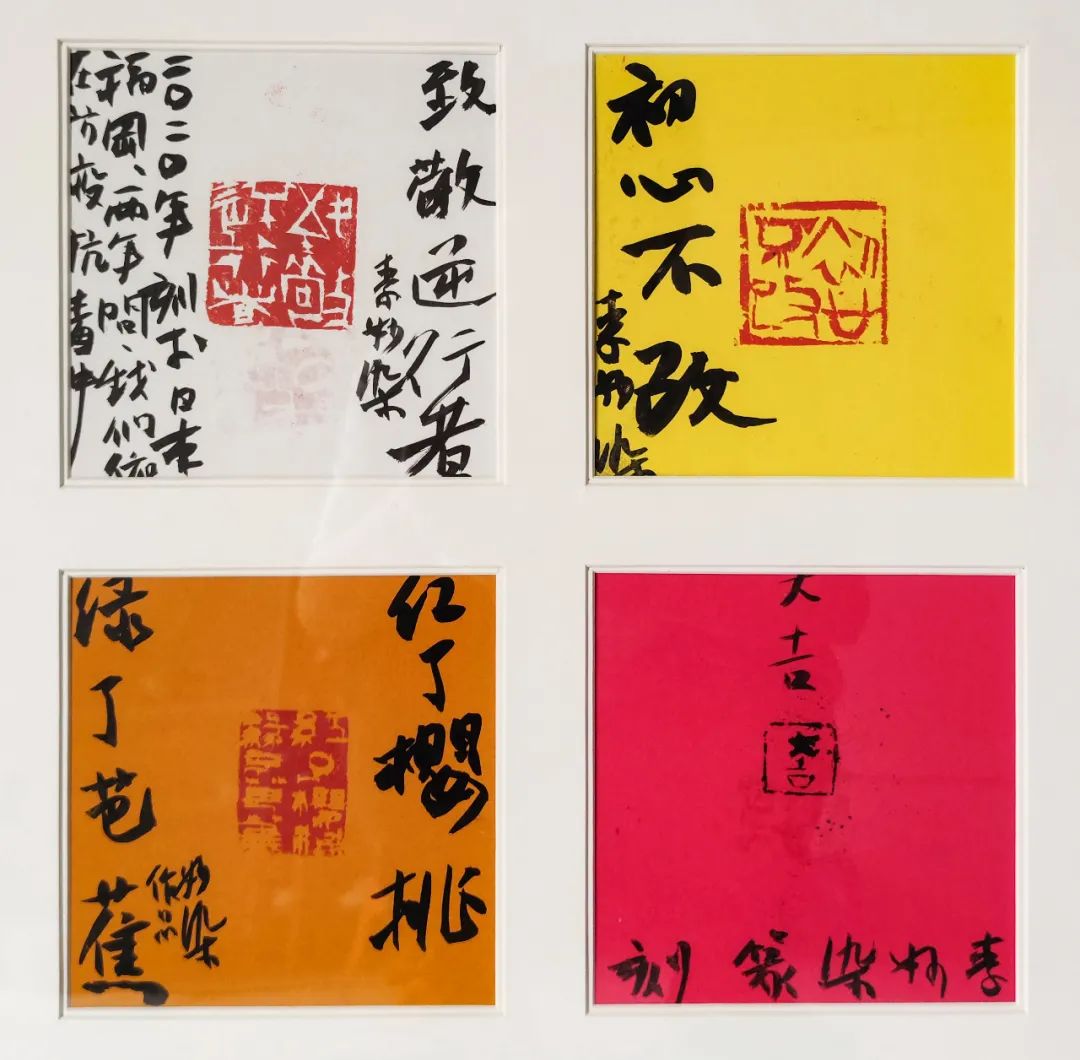 致敬逆行者
染
二〇二〇年刻于日本
福冈、两年间、我们依
在防疫抗毒中
初心不改
李 染
初心不改
红了樱桃
绿了芭蕉
染
作品
大吉
大吉
李 染篆刻